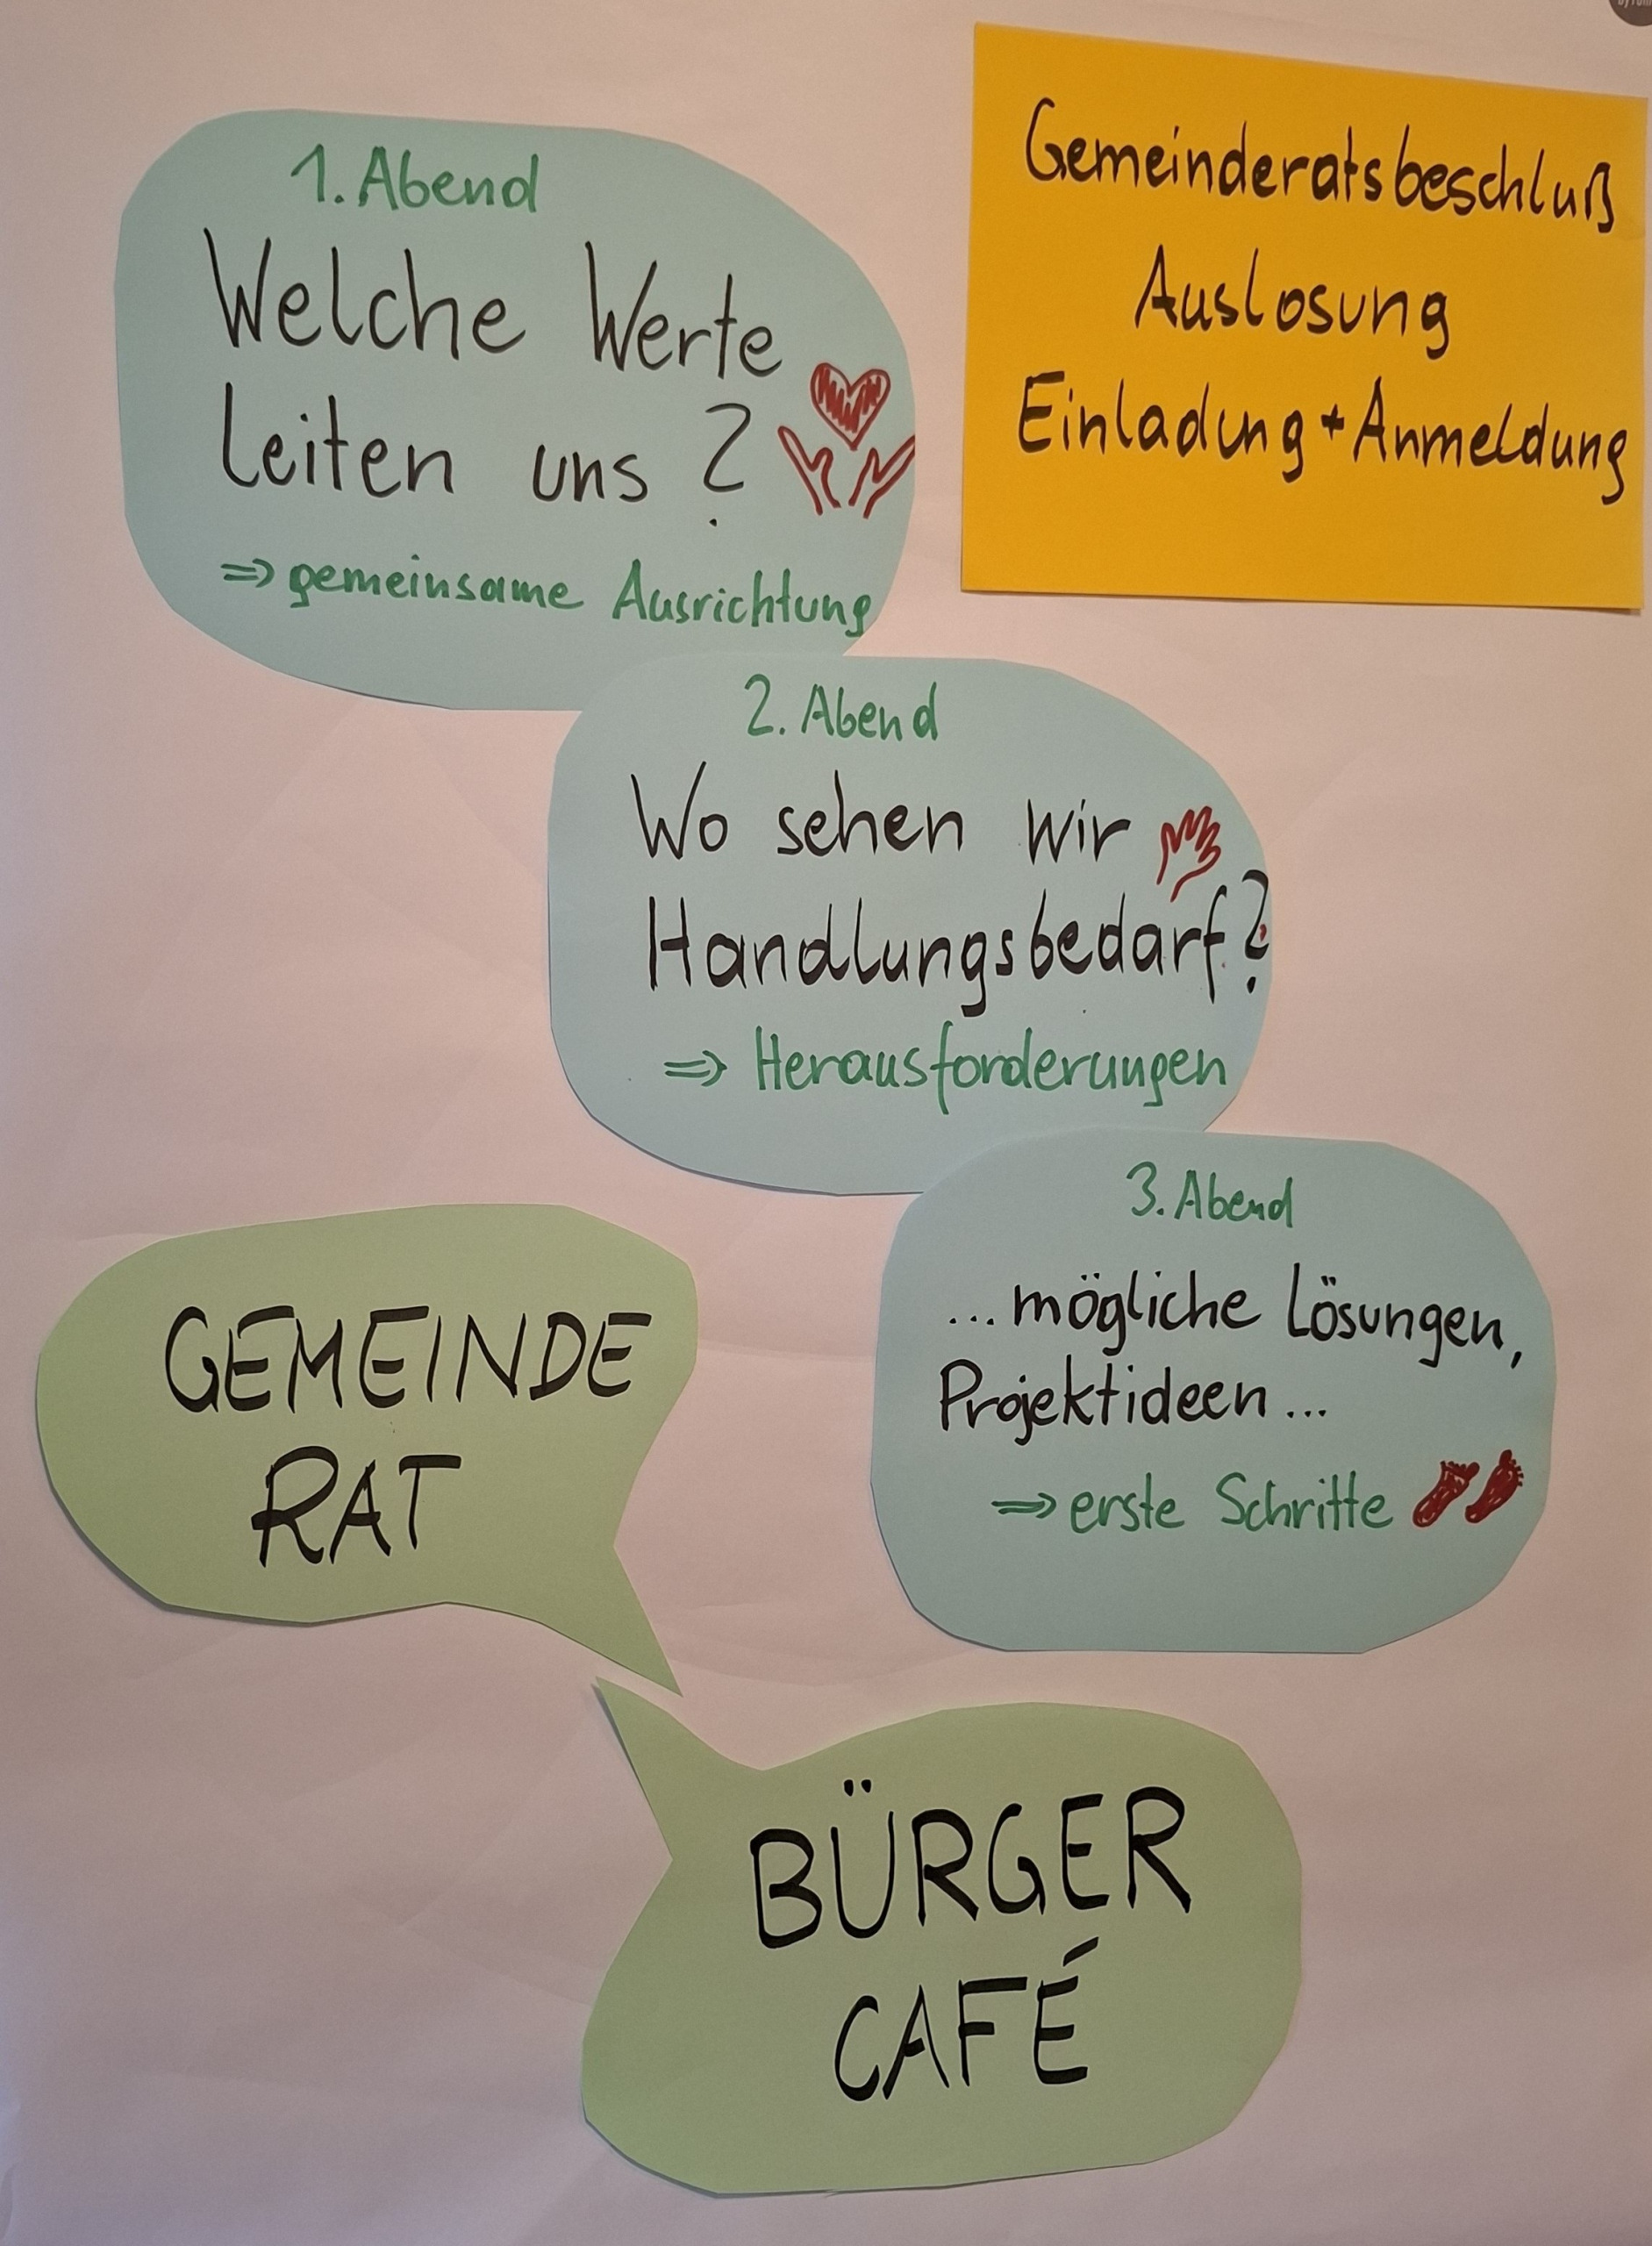 1. Abend
Welche Werte
Leiten uns?
⇒ gemeinsame Ausrichtung
Gemeinderatsbeschluß
Auslosung
Einladung + Anmeldung
2. Abend
Wo sehen wir
Handlungsbedarf?
⇒ Herausforderungen
3. Abend
...mögliche Lösungen,
Projektideen...
⇒ erste Schritte
GEMEINDE
RAT
BÜRGER
CAFÉ